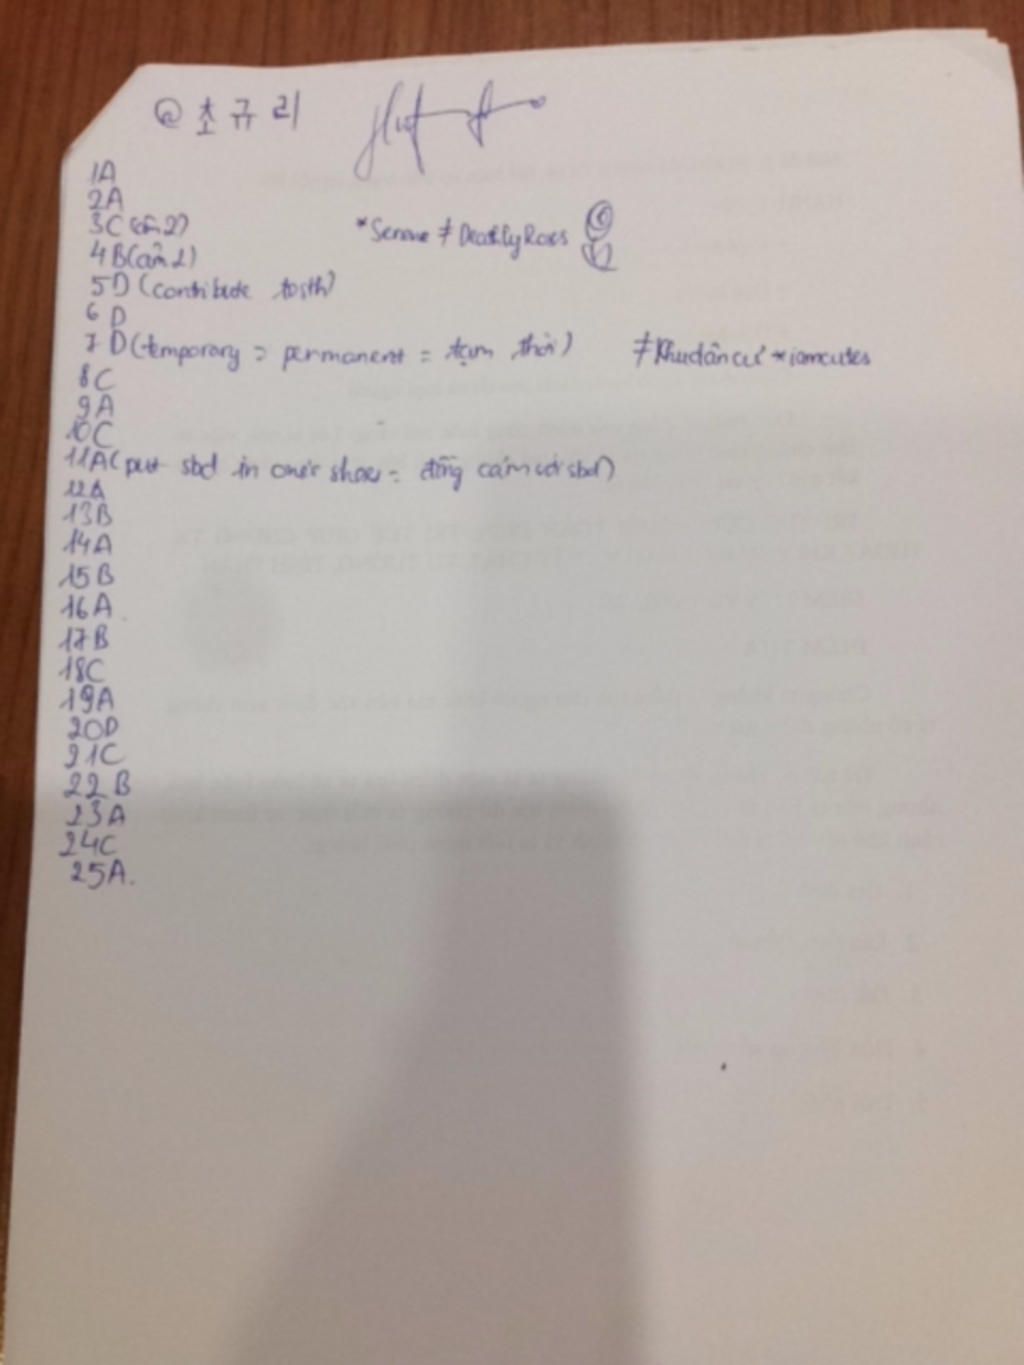 @ 초규리
1A
2A
3C (âm 2)
*Serene ≠ DeadlyRoses
4B (âm 2)
5D (contribute to sth)
6D
7D (temporary = permanent = tạm thời) ≠ Khudâncư *iamcutes
8C
9A
10C
11A (put sbd in one's shoe = đồng cảm với sbd)
12A
13B
14A
15B
16A
17B
18C
19A
20D
21C
22B
23A
24C
25A.